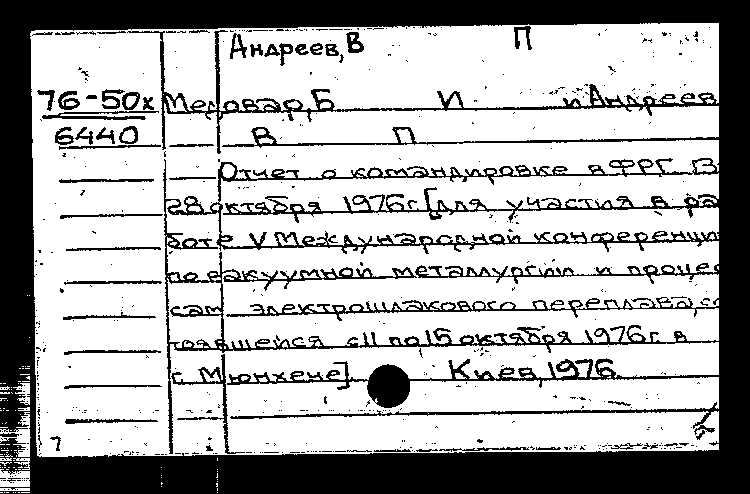 Андреев, В П
76-50х Медовар, Б И и Андреев
6440 В П
Отчет о командировке в ФРГ
28 октября 1976г. [для участия в ра
боте V Международной конференции
по вакуумной металлургии и процес
сам электрошлакового переплава, со
тоявшейся с 11 по 15 октября 1976г. в
г. Мюнхене]. Киев, 1976.
7
2